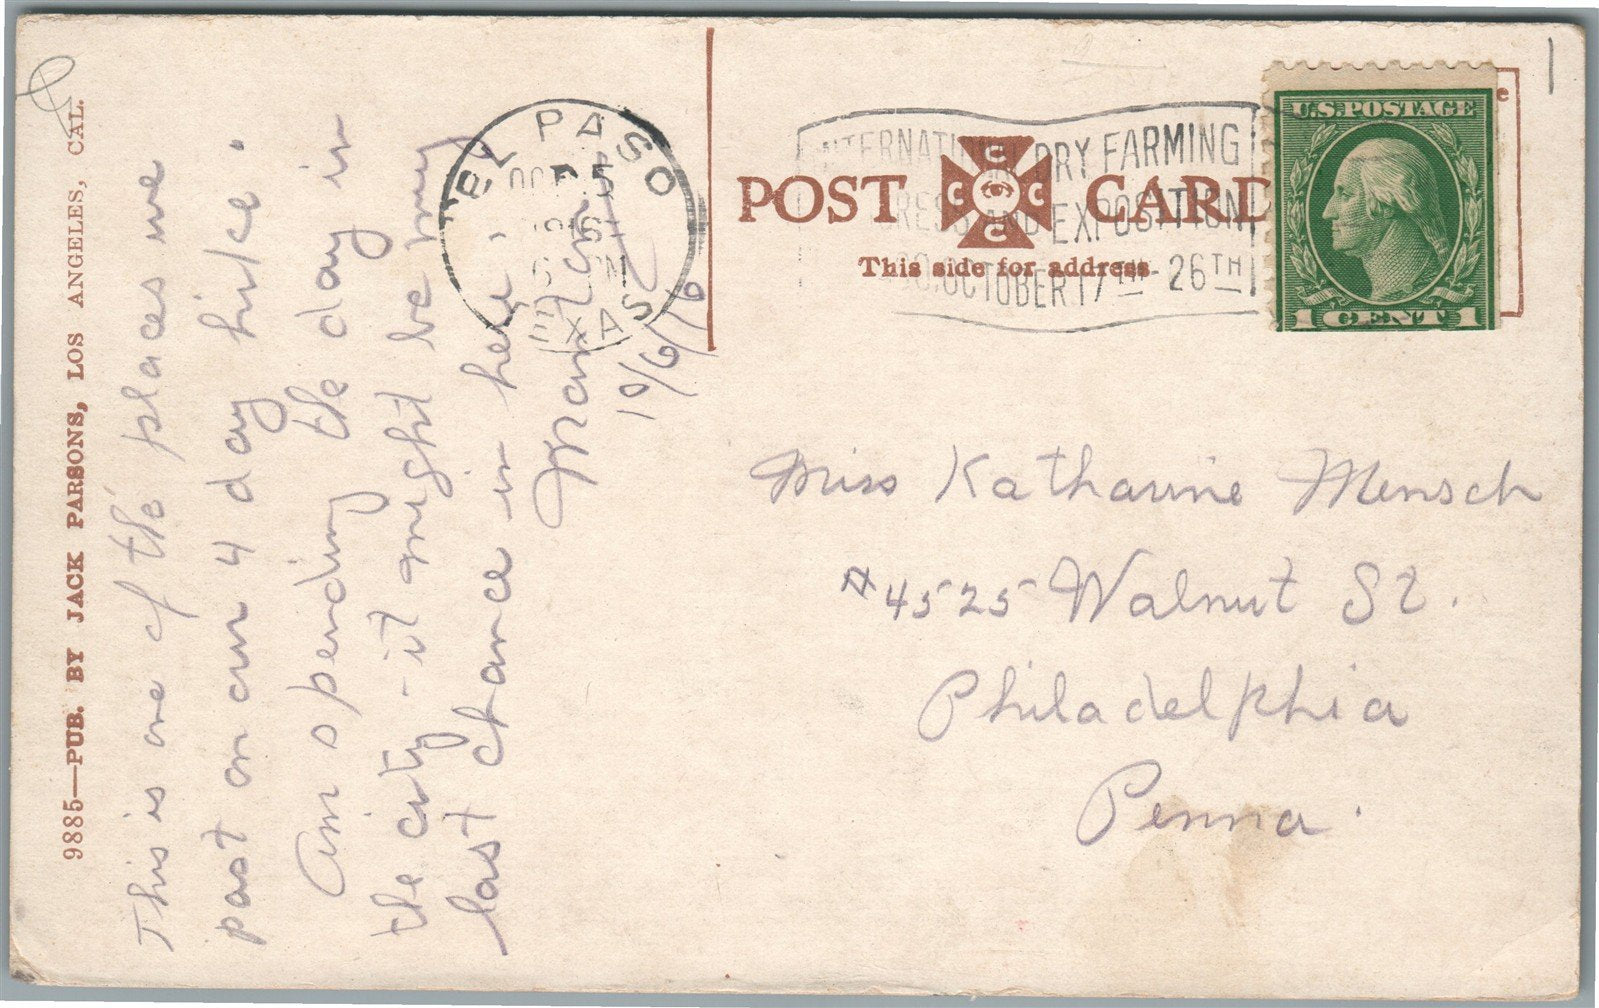 9885—PUB. BY JACK PARSONS, LOS ANGELES, CAL.
This is one of the places we
past on our 4 day hike.
Am spending the day in
the city - it might be my
last chance in here.
10/6/16
EL PASO
TEXAS
INTERNATIONAL DRY FARMING
CONGRESS AND EXPOSITION
OCTOBER 17TH - 26TH
POST CARD
C C C C
This side for address
U.S. POSTAGE
1 CENT 1
Miss Katharine Mensch
#4525 Walnut St.
Philadelphia
Penna.